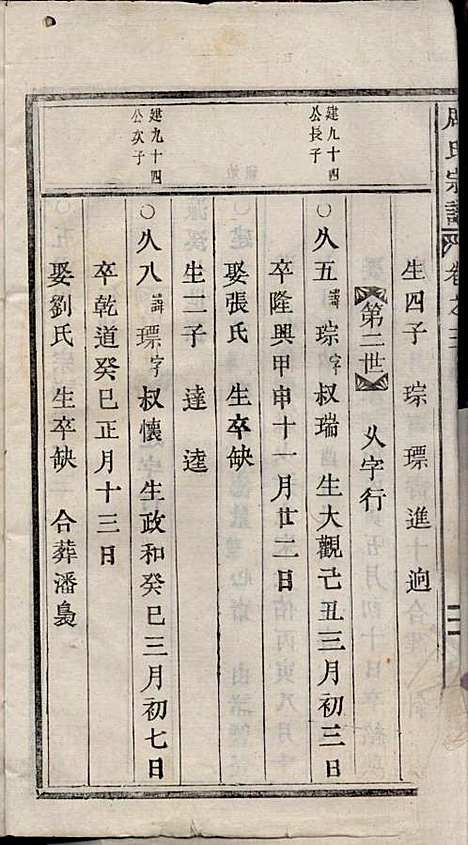 周氏宗譜 卷之三
生四子 琮 瑮 進 逈
第二世 乆字行
建九十四
公長子
○乆五 諱 琮 字 叔瑞 生大觀己丑三月初三日
卒隆興甲申十一月廿二日
娶張氏 生卒缺
生二子 達 逵
建九十四
公次子
○乆八 諱 瑮 字 叔懷 生政和癸巳三月初七日
卒乾道癸巳正月十三日
娶劉氏 生卒缺 合葬潘梟